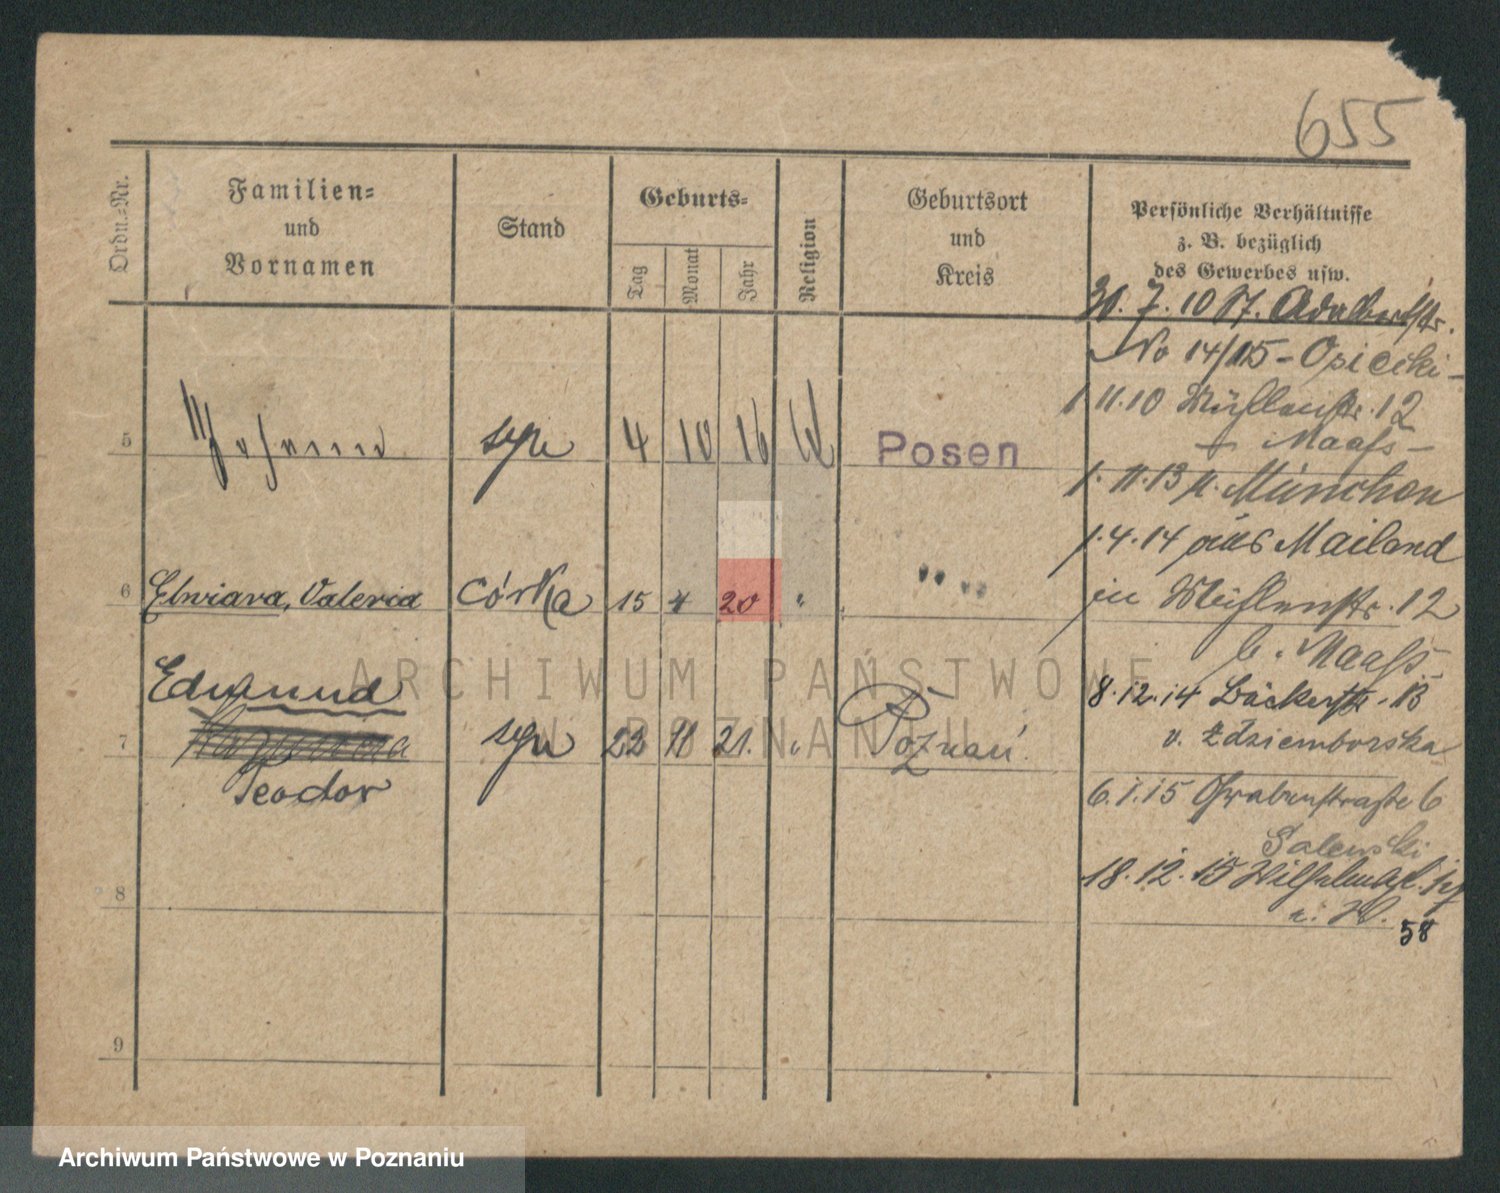 655
Ordn.-Nr.
Familien-
und
Vornamen
Stand
Geburts-
Tag
Monat
Jahr
Religion
Geburtsort
und
Kreis
Persönliche Verhältnisse
z. B. bezüglich
des Gewerbes usw.
30. 7. 10 St. Adalbertstr.
No 14/15 - Opielski -
1. 11. 10 Mühlenstr. 12
- Maaß -
5 Johann syn 4 10 16 Posen
1. 11. 13 n. München
1. 4. 14 aus Mailand
6 Elwiara, Valeria córka 15 4 20 "
in Mühlenstr. 12
b. Maaß
Edmund
8. 12. 14 Bäckerstr. 13
7 syn 22 11 21. " Poznań
v. Zdziemborska
Teodor
6. 1. 15 Grabenstraße 6
Salewski
18. 12. 15
8
58
9
ARCHIWUM PAŃSTWOWE
W POZNANIU
Archiwum Państwowe w Poznaniu